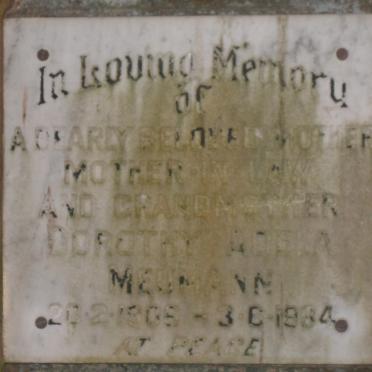 In Loving Memory
of
A DEARLY BELOVED MOTHER
MOTHER IN LAW
AND GRANDMOTHER
DOROTHY
NEUMANN
AT PEACE